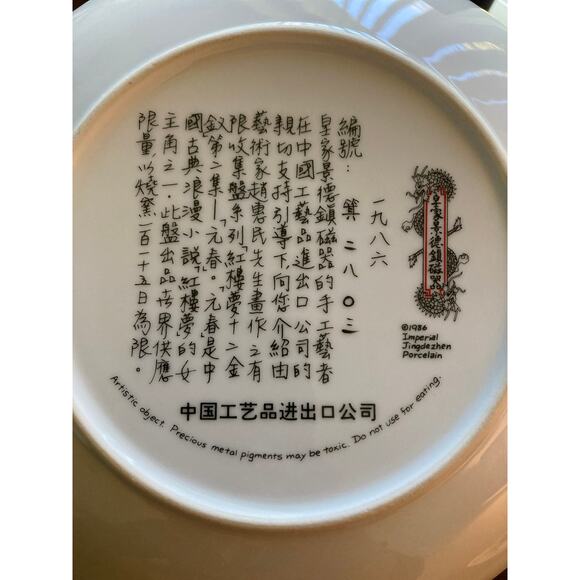 皇家景德鎮磁器
一九八六
二八〇三
編號：
皇家景德鎮磁器的手工藝者
在中國工藝品進出口公司的
親切支持引導下,向您介紹由
藝術家趙惠民先生畫作之有
限收集盤系列「紅樓夢十二金
釵」第二集—元春。元春是中
國古典浪漫小說「紅樓夢」的女
主角之一。此盤出品世界供應
限量以燒窯一百一十五日為限。
©1986
Imperial
Jingdezhen
Porcelain
中国工艺品进出口公司
Artistic object. Precious metal pigments may be toxic. Do not use for eating.